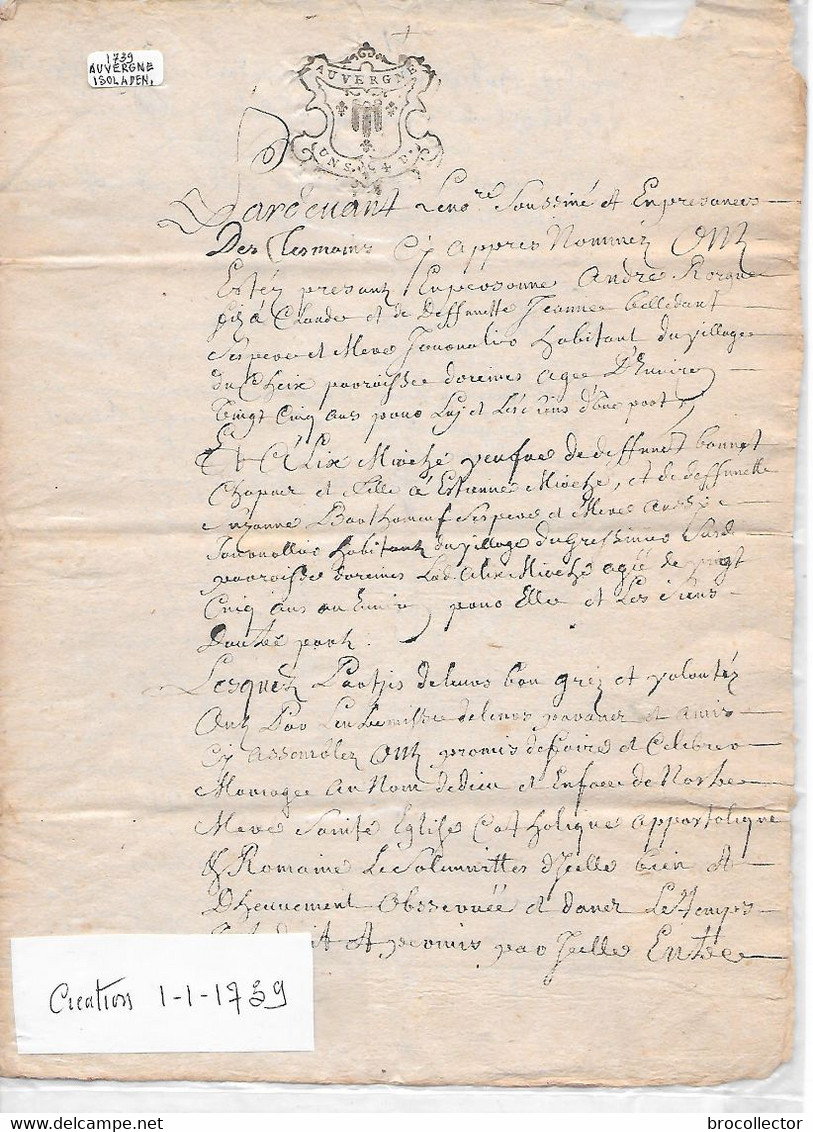 1739
AUVERGNE
ISOLADEN.
AUVERGNE
UN S. 4 D.
Pardevant Lenore Soussiné et Enpresances
Des tesmoins Cy appres Nommez Ont
Estéz presant Enpersonne André
filz à Claude et de Deffunette Jeanne
Ses pere et Mere Journalier habitant du village
Du Cheix parroisse doreines agee D'Enuiron
Vingt Cinq ans pour Luj et Les siens d'une part
Et Élix Mioche veufue de deffunct bonnet
et fille à Estienne Mioche, et de deffunette
Suzanne Barthomeuf Ses pere et Mere aussy
Journallier habitant du village du
parroisse doreines Lad. Alix Mioche agée de vingt
Cinq ans ou Enuiron pour Elle et Les siens
Dautre part.
Lesquelz Partjis de leurs bon gréz et volontéz
Ont Par de leurs parans et amis
Cy assemblez Ont promis de faire et Celebrer
Mariage au Nom de Dieu et Enface de Nostre
Mere Sainte Eglise Catholique appostolique
& Romaine Le Solemnittes d'Jcelle bien et
Dheuuement Obseruée et dans Le temps
et permis par Jcelle Entre
Creation 1-1-1739
delcampe.net
brocollector